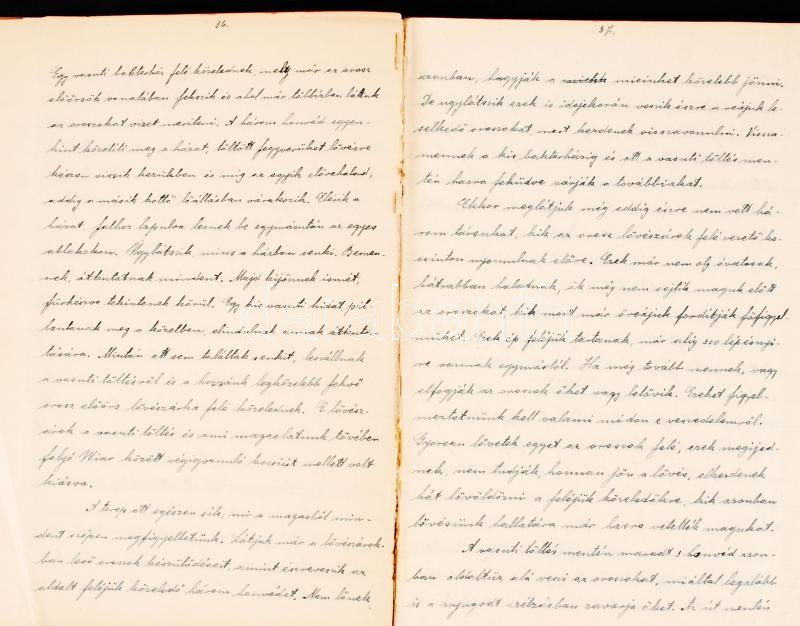 36.
Egy vasuti bakterház felé közelednek, mely már az orosz
előőrsök vonalában fekszik és ahol már többízben láttuk
az oroszokat vizet meríteni. A három honvéd egyen-
kint közelíti meg a házat, töltött fegyverüket lövésre
készen viszik kezükben és míg az egyik előrehalad,
addig a másik kettő lőállásban várakozik. Elérik a
házat, falhoz lapulva lesnek be egymásután az egyes
ablakokon. Ugylátszik nincs a házban senki. Bemen-
nek, átkutatnak mindent. Majd kijönnek ismét,
fürkészve tekintenek körül. Egy kis vasuti hidat pil-
lantanak meg a közelben, elindulnak annak átkuta-
tására. Miután ott sem találtak senkit, leszállnak
a vasuti töltésről és a hozzánk legközelebb fekvő
orosz előőrs lövészárka felé közelednek. E lövész-
árok a vasuti töltés és ami magaslatunk tövében
folyó Wiar között végigvonuló kocsiút mellett volt
kiásva.
A terep ott egészen sík, mi a magasból min-
dent szépen megfigyelhetünk. Látjuk már a lövészárok-
ban levő oroszok készülődéseit, amint észreveszik az
oldalt feléjük közeledő három honvédet. Nem lőnek
37.
azonban, hagyják a mieinket közelebb jönni.
De ugylátszik ezek is idejekorán veszik észre a reájuk le-
selkedő oroszokat, mert kezdenek visszavonulni. Vissza-
mennek a kis bakterházig és ott a vasuti töltés men-
tén hasra feküdve várják a továbbiakat.
Ekkor meglátjuk még eddig észre nem vett há-
rom társunkat, kik az orosz lövészárok felé vezető ko-
csiuton nyomulnak előre. Ezek már nem oly óvatosak,
bátrabban haladnak, ők még nem sejtik maguk előtt
az oroszokat, kik most már őreájuk fordítják főfigyel-
müket. Ezek ép feléjük tartanak, már alig 500 lépésnyi-
re vannak egymástól. Ha még tovább mennek, vagy
elfogják az oroszok őket vagy lelövik. Ezeket figyel-
meztetnünk kell valami módon e veszedelemről.
Gyorsan lövetek egyet az oroszok felé, ezek megijed-
nek, nem tudják, honnan jön a lövés, elkezdenek
hát lövöldözni a feléjük közeledőkre, kik azonban
lövésünk hallatára már hasra vetették magukat.
A vasuti töltés mentén maradt 3 honvéd azon-
ban oldaltűz alá veszi az oroszokat, miáltal legalább
is a nyugodt célzásban zavarja őket. Az út mentén